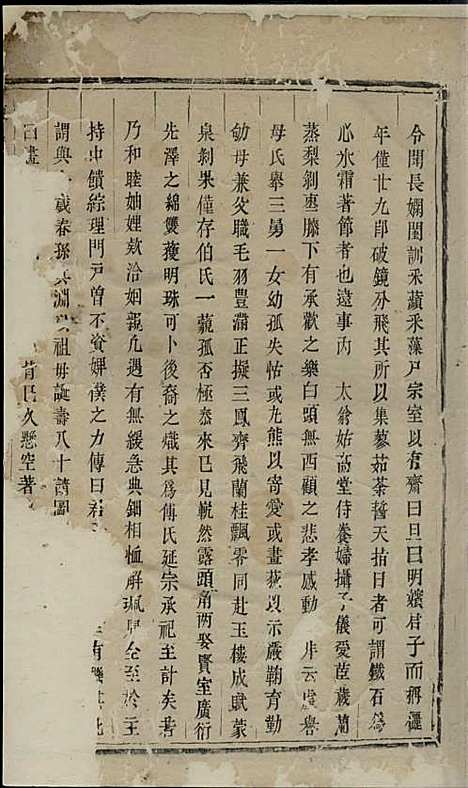 令聞長嫻閨訓采蘋采藻戶宗室以有齋曰旦曰明嬪君子而稱禮
年僅廿九卽破鏡分飛其所以集蓼茹荼誓天指日者可謂鐵石爲
心氷霜著節者也遠事丙 太翁姑高堂侍養婦攝子儀愛莐蕆蘭
蒸梨剝棗膝下有承歡之樂白頭無西顧之悲孝感動 非云虛譽
母氏舉三男一女幼孤失怙或丸熊以寄愛或畫荻以示嚴鞠育勤
劬母兼父職毛羽豐滿正擬三鳳齊飛蘭桂飄零同赴玉樓成賦蒙
泉剝果僅存伯氏一藐孤否極泰來已見嶄然露頭角兩娶賢室廣衍
先澤之綿雙獲明珠可卜後裔之熾其爲傅氏延宗承祀主計矣若
乃和睦妯娌欵洽姻親凡遇有無緩急典鈿相恤解珮 至於主
持中饋綜理門戶曾不資婢僕之力傳曰 有
謂與 歲春孫其淵 祖母誕壽八十請圖
曰 昔 久懸空著